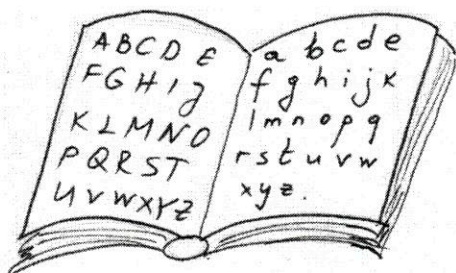 A B C D E
F G H I J
K L M N O
P Q R S T
U V W X Y Z
a b c d e
f g h i j k
l m n o p q
r s t u v w
x y z.